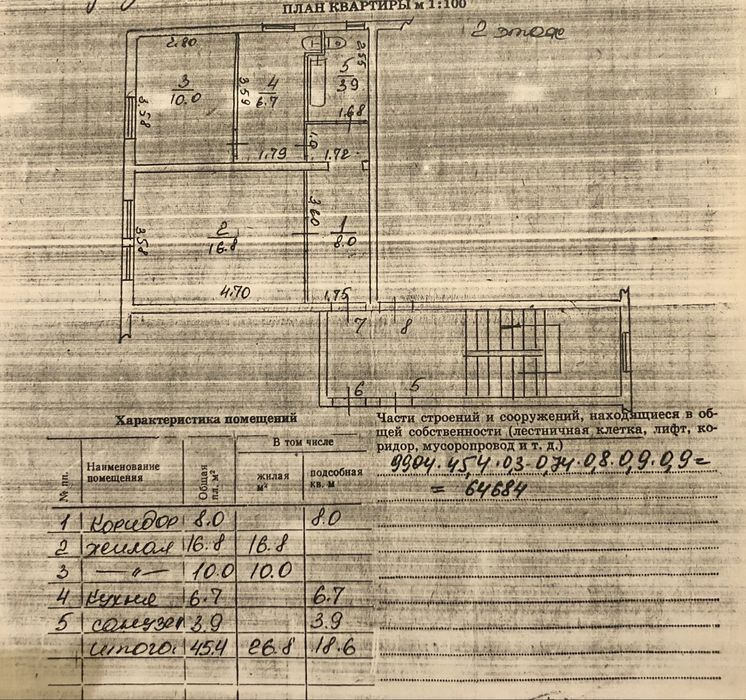 ПЛАН КВАРТИРЫ м 1:100
2 этаж
2.80
3
10.0
3.58
3.59
4
6.7
2.55
5
3.9
1.68
1.0
1.79
1.72
3.58
2
16.8
3.60
1
8.0
4.70
1.75
7
8
6
5
Характеристика помещений
№ пп.
Наименование помещения
Общая пл. м²
В том числе
жилая м²
подсобная кв. м
1 коридор 8.0 8.0
2 жилая 16.8 16.8
3 —"— 10.0 10.0
4 кухня 6.7 6.7
5 санузел 3.9 3.9
итого: 45.4 26.8 18.6
Части строений и сооружений, находящиеся в об-
щей собственности (лестничная клетка, лифт, ко-
ридор, мусоропровод и т. д.)
9904·45,4·03·0,74·0,8·0,9·0,9=
= 64684